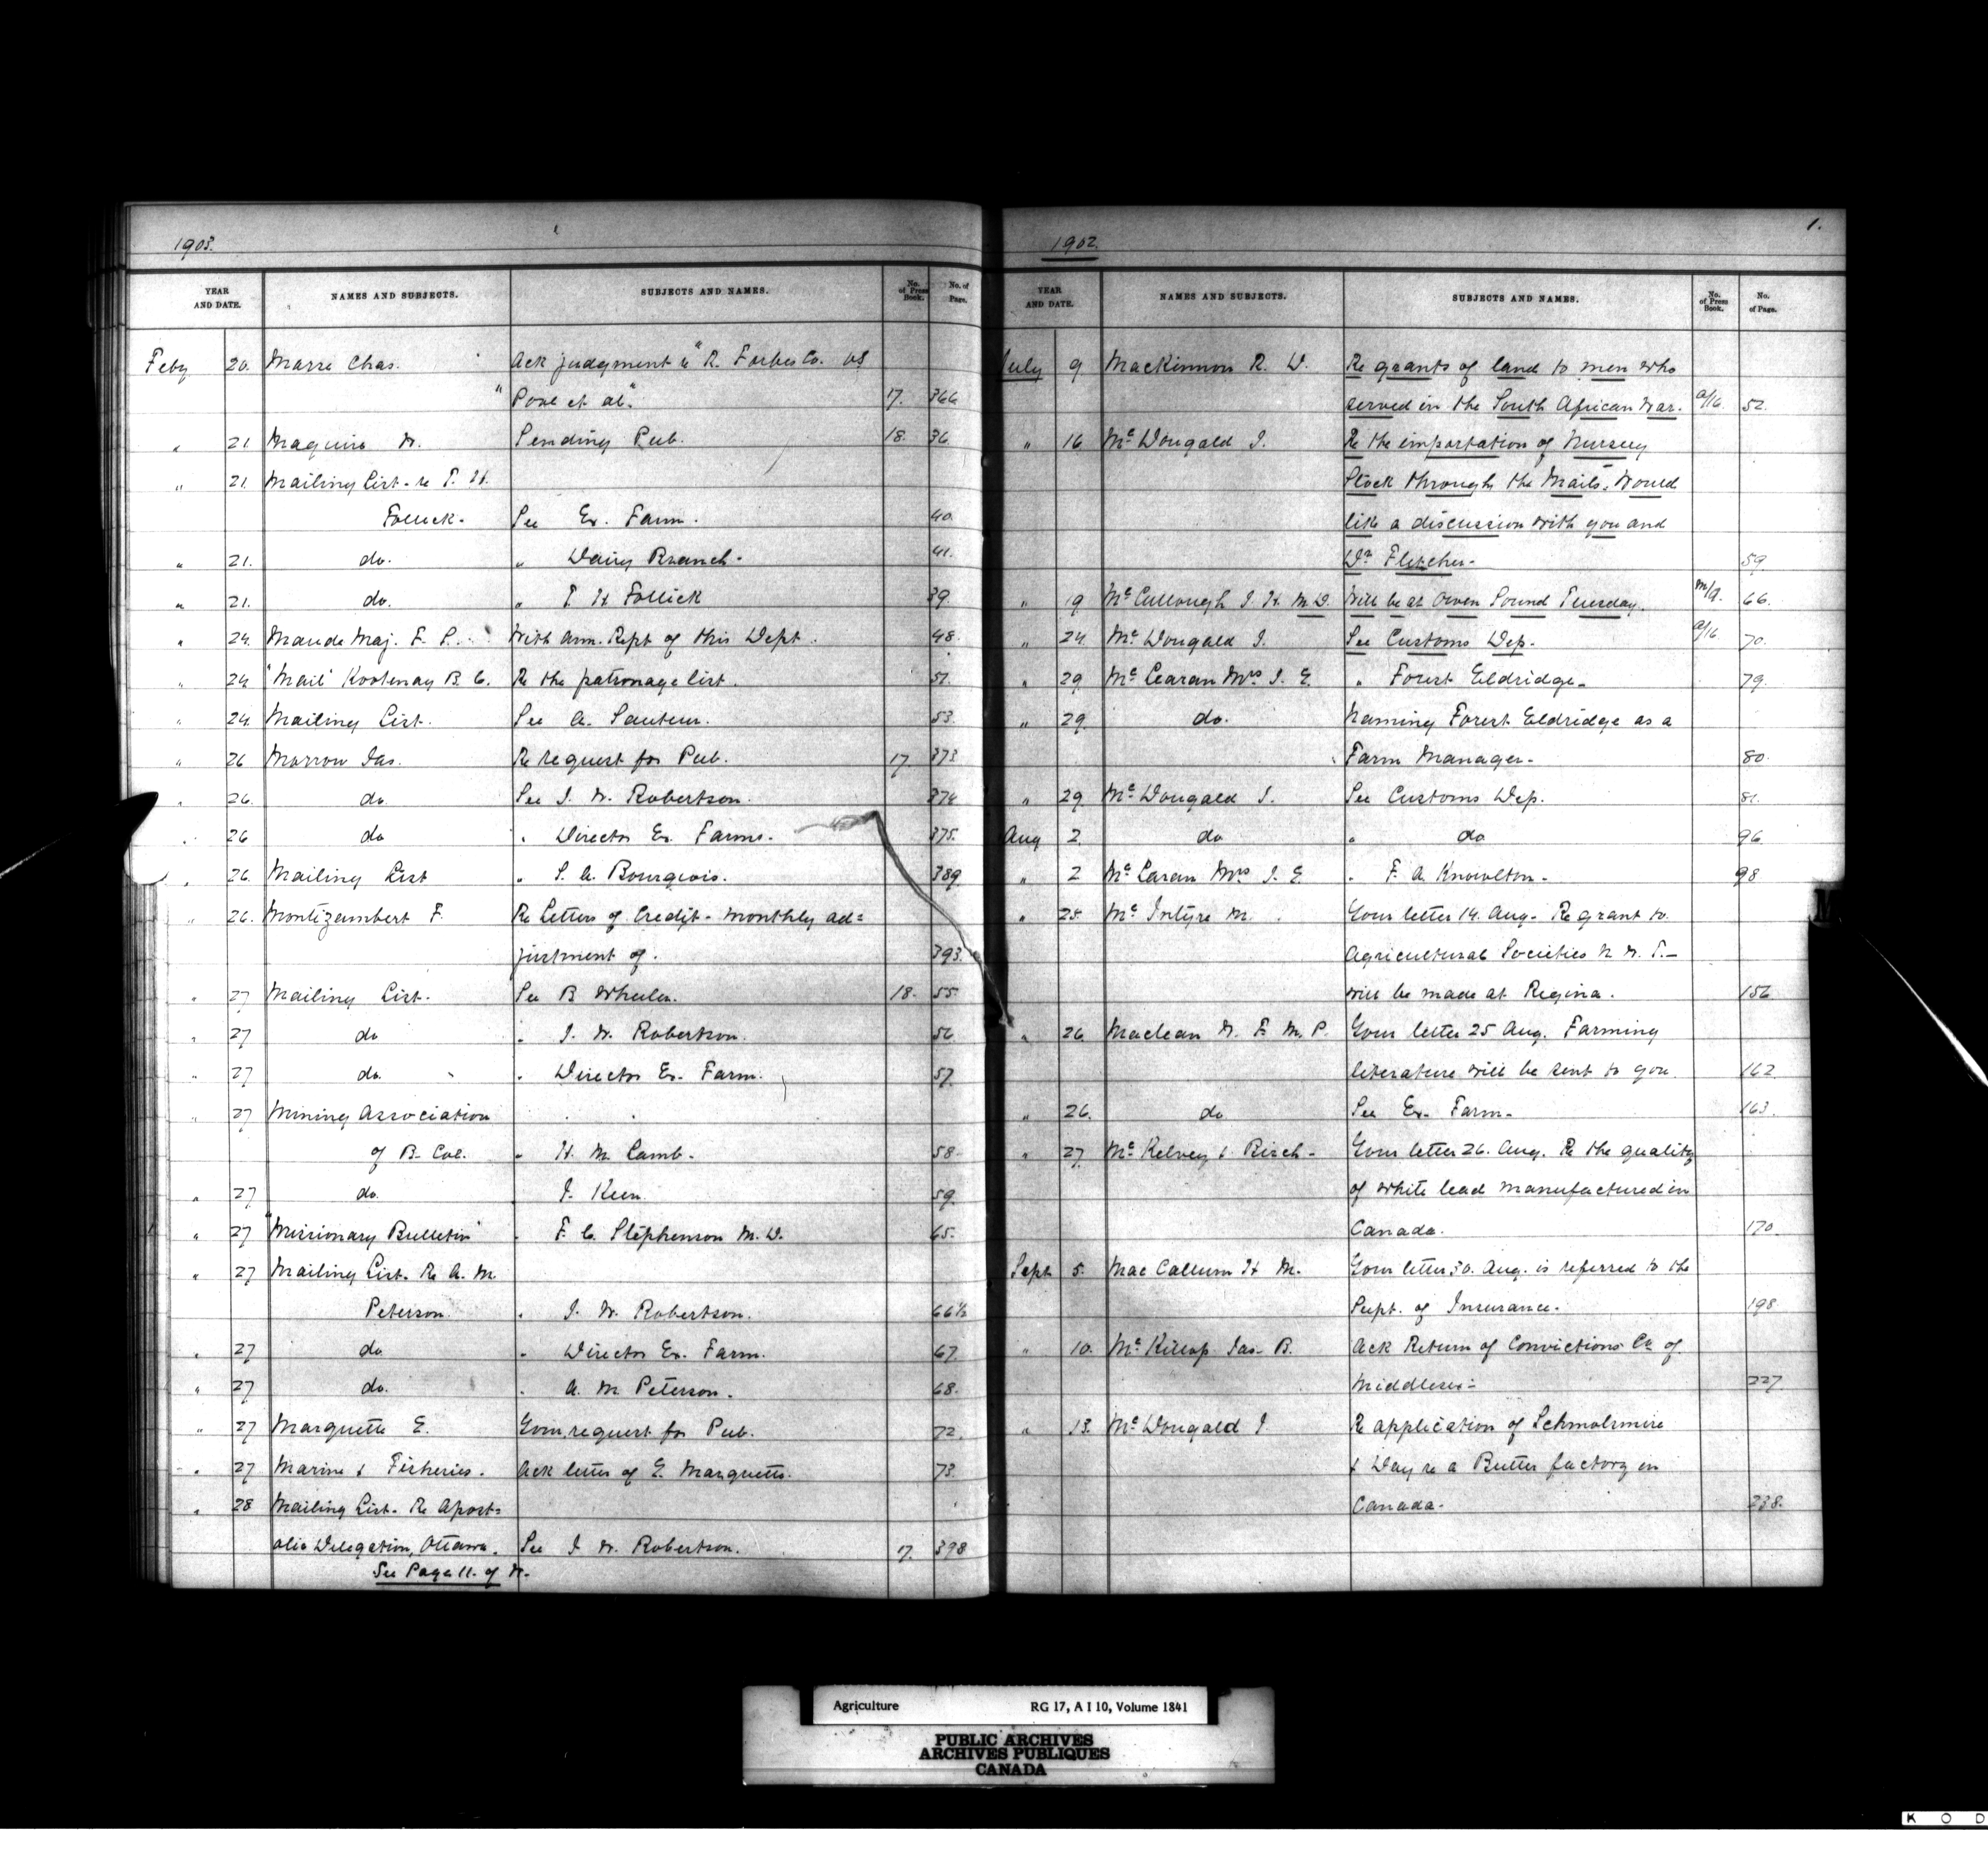 1903.
YEAR AND DATE. NAMES AND SUBJECTS. SUBJECTS AND NAMES. No. of Press Book. No. of Page.
Feby 20. Marse Chas. Ack judgment in "R. Forbes Co. vs
"Poal et al". 17. 366
" 21 Maguire W. Sending Pub. 18. 36.
" 21. Mailing List - re T. H.
Follick - See Ex. Farm. 40.
" 21. do. " Dairy Branch - 41.
" 21. do. " T. H. Follick 39.
" 24. Maude Maj. F. P. With Ann. Rept of this Dept. 48.
" 24 "Mail" Kootenay B. C. Re the patronage list. 51.
" 24. Mailing List. See A. Sauteur. 53.
" 26 Morrow Jas. Re request for Pub. 17. 373
" 26. do. See J. W. Robertson. 374
" 26 do " Director Ex. Farms. 375.
" 26. Mailing List " S. A. Bourgeois. 389.
" 26. Montizambert F. Re Letters of Credit - monthly ad=
justment of. 393.
" 27 Mailing List. See B. Wheeler. 18. 55
" 27 do " J. W. Robertson. 56
" 27 do. " Director Ex. Farm. 57.
" 27 Mining Association
of B. Col. " H. M. Lamb. 58
" 27 do. J. Keen. 59.
" 27 "Missionary Bulletin" " F. C. Stephenson M. D. 65.
" 27 Mailing List. Re A. M.
Peterson. " J. W. Robertson. 66½
" 27 do " Director Ex. Farm. 67.
" 27 do. " A. M. Peterson. 68.
" 27 Marquette E. Your request for Pub. 72.
" 27 Marine & Fisheries. Ack letter of E. Marquette. 73.
" 28 Mailing List. Re Apost=
olic Delegation, Ottawa. See J. W. Robertson. 17. 398
See Page 11. of W.
1902. 1.
YEAR AND DATE. NAMES AND SUBJECTS. SUBJECTS AND NAMES. No. of Press Book. No. of Page.
July 9 MacKinnon R. D. Re grants of land to men who
served in the South African War. a/16. 52.
" 16 McDougald J. Re the importation of Nursery
Stock through the Mails. Would
like a discussion with you and
Dr Fletcher - 59.
" 19 McCullough J. H. M.D. Will be at Owen Sound Tuesday. m/9. 66.
" 24 McDougald J. See Customs Dep. a/16 70.
" 29 McLaran Mrs J. E. " Forest Eldridge - 79.
" 29 do. Naming Forest Eldridge as a
Farm Manager - 80.
" 29 McDougald J. See Customs Dep. 81.
Aug 2. do " do 96
" 2 McLaran Mrs J. E. " F. A. Knowlton - 98
" 25 McIntyre M. Your letter 14. Aug - Re grant to
Agricultural Societies N. W. T. -
will be made at Regina. 156
" 26 Maclean W. F. M. P. Your letter 25 Aug. Farming
literature will be sent to you. 162.
" 26. do See Ex. Farm - 163.
" 27 McKelvey & Birch - Your letter 26. Aug. Re the quality
of white lead manufactured in
Canada. 170.
Sept 5. MacCallum H. M. Your letter 30. Aug. is referred to the
Supt. of Insurance - 198
" 10. McKillop Jas. B. Ack Return of Convictions Co. of
Middlesex - 227
" 13. McDougald J Re application of Schmolmire
& Day re a Butter factory in
Canada - 238.
M
Agriculture RG 17, A I 10, Volume 1841
PUBLIC ARCHIVES
ARCHIVES PUBLIQUES
CANADA
K O D